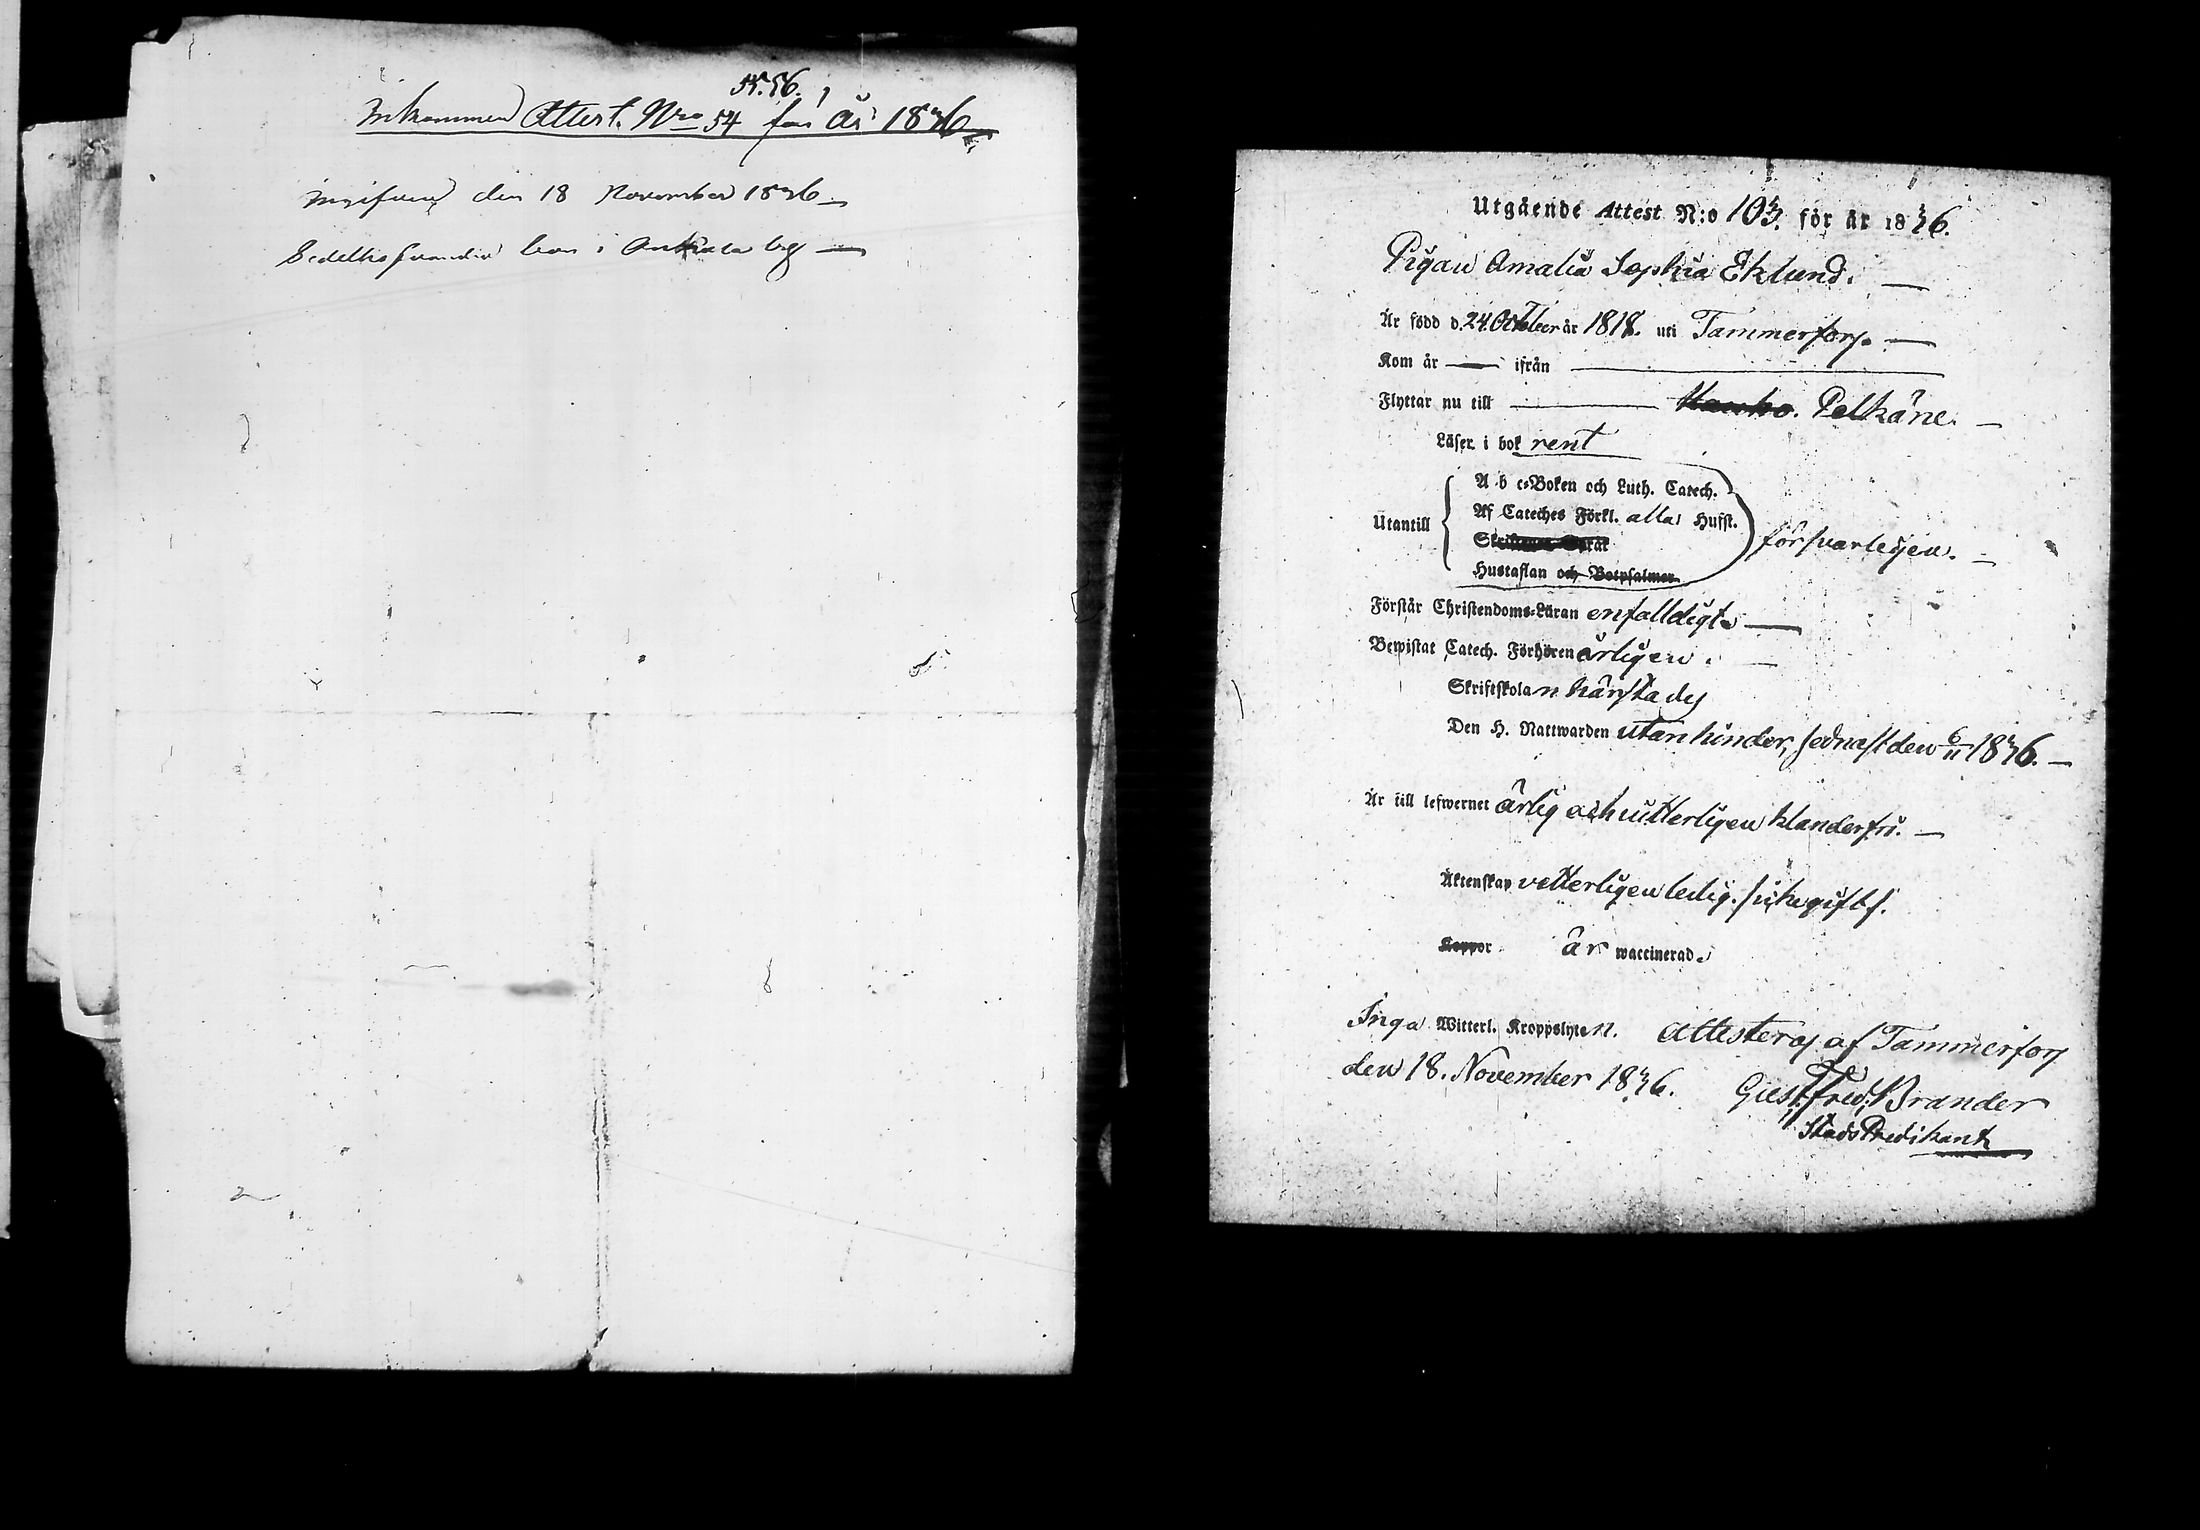 55. 56.
Inkommen Attest. Nro 54 för år 1836
den 18 November 1836
Utgående Attest N:o 103. för år 1836.
Pigan Amalia Sophia Eklund.
Är född d. 24 October år 1818. uti Tammerfors.
Kom år — ifrån
Flyttar nu till Pelkäne.
Läser i bok rent
A b c-Boken och Luth. Catech.
Af Cateches Förkl. alla Husst.
Utantill försvarligen.
Hustaflan och Botpsalmer
Förstår Christendoms-Läran enfalldigt.
Bewistat Catech. Förhören årligen.
Skriftskolan härstädes
Den H. Nattwarden utan hinder, sednast den 6/11 1836.
Är till lefwernet ärlig och witterligen klanderfri.
Äktenskap vetterligen ledig.
Koppor är waccinerad.
Inga Witterl. Kroppslyten. Attesteras af Tammerfors
den 18. November 1836. Brander
Stads Predikant